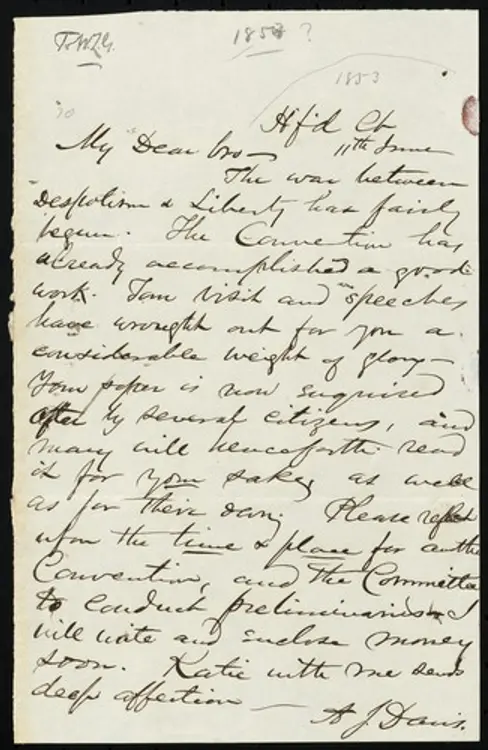 To W.L.G.
1857 ?
1853
H'f'd Ct
My Dear bro— 11th June
The war between
Despotism & Liberty has fairly
begun. The Convention has
already accomplished a good
work. Your visit and speeches
have wrought out for you a
considerable weight of glory—
Your paper is now enquired
after by several citizens, and
many will henceforth read
it for your sake, as well
as for their own. Please reflect
upon the time & place for anothe
Convention, and the Committee
to conduct preliminaries & I
will write and enclose money
soon. Katie with me sends
deep affection—
A J Davis.